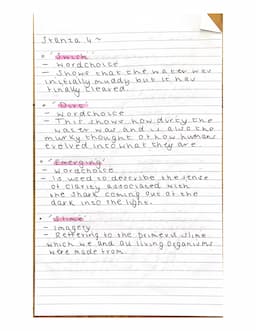 Stanza 4 ~
• "Switch"
- wordchoice
- Shows that the water was
initially muddy but it has
finally cleared.
• "Dirt"
- Wordchoice
- This shows how dirty the
water was and is also the
murky thought of how humans
evolved into what they are
• "Emerging"
- Wordchoice
- Is used to describe the sense
of clarity associated with
the shark coming out of the
dark into the light.
• "Slime"
- imagery
- Reffering to the primeval slime
which we and all living organisms
were made from.